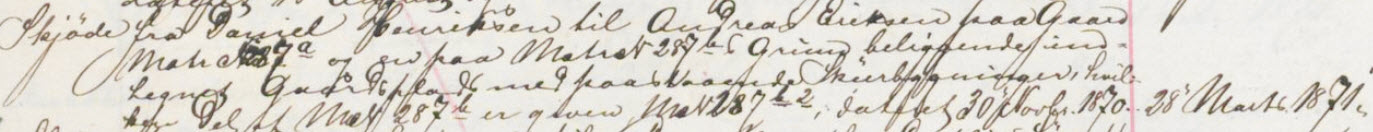 Skjøde fra Daniel Henriksen til Andreas Eriksen paa Gaard
Matr № 287a og en paa Matr № 287b's Grund beliggende ind-
tegnet Gaardsplads med paastaaende Skurbygninger, hvil-
ken Del af M№ 287b er given M№ 287b2, dateret 30' Novbr. 1870. 28' Marts 1871.